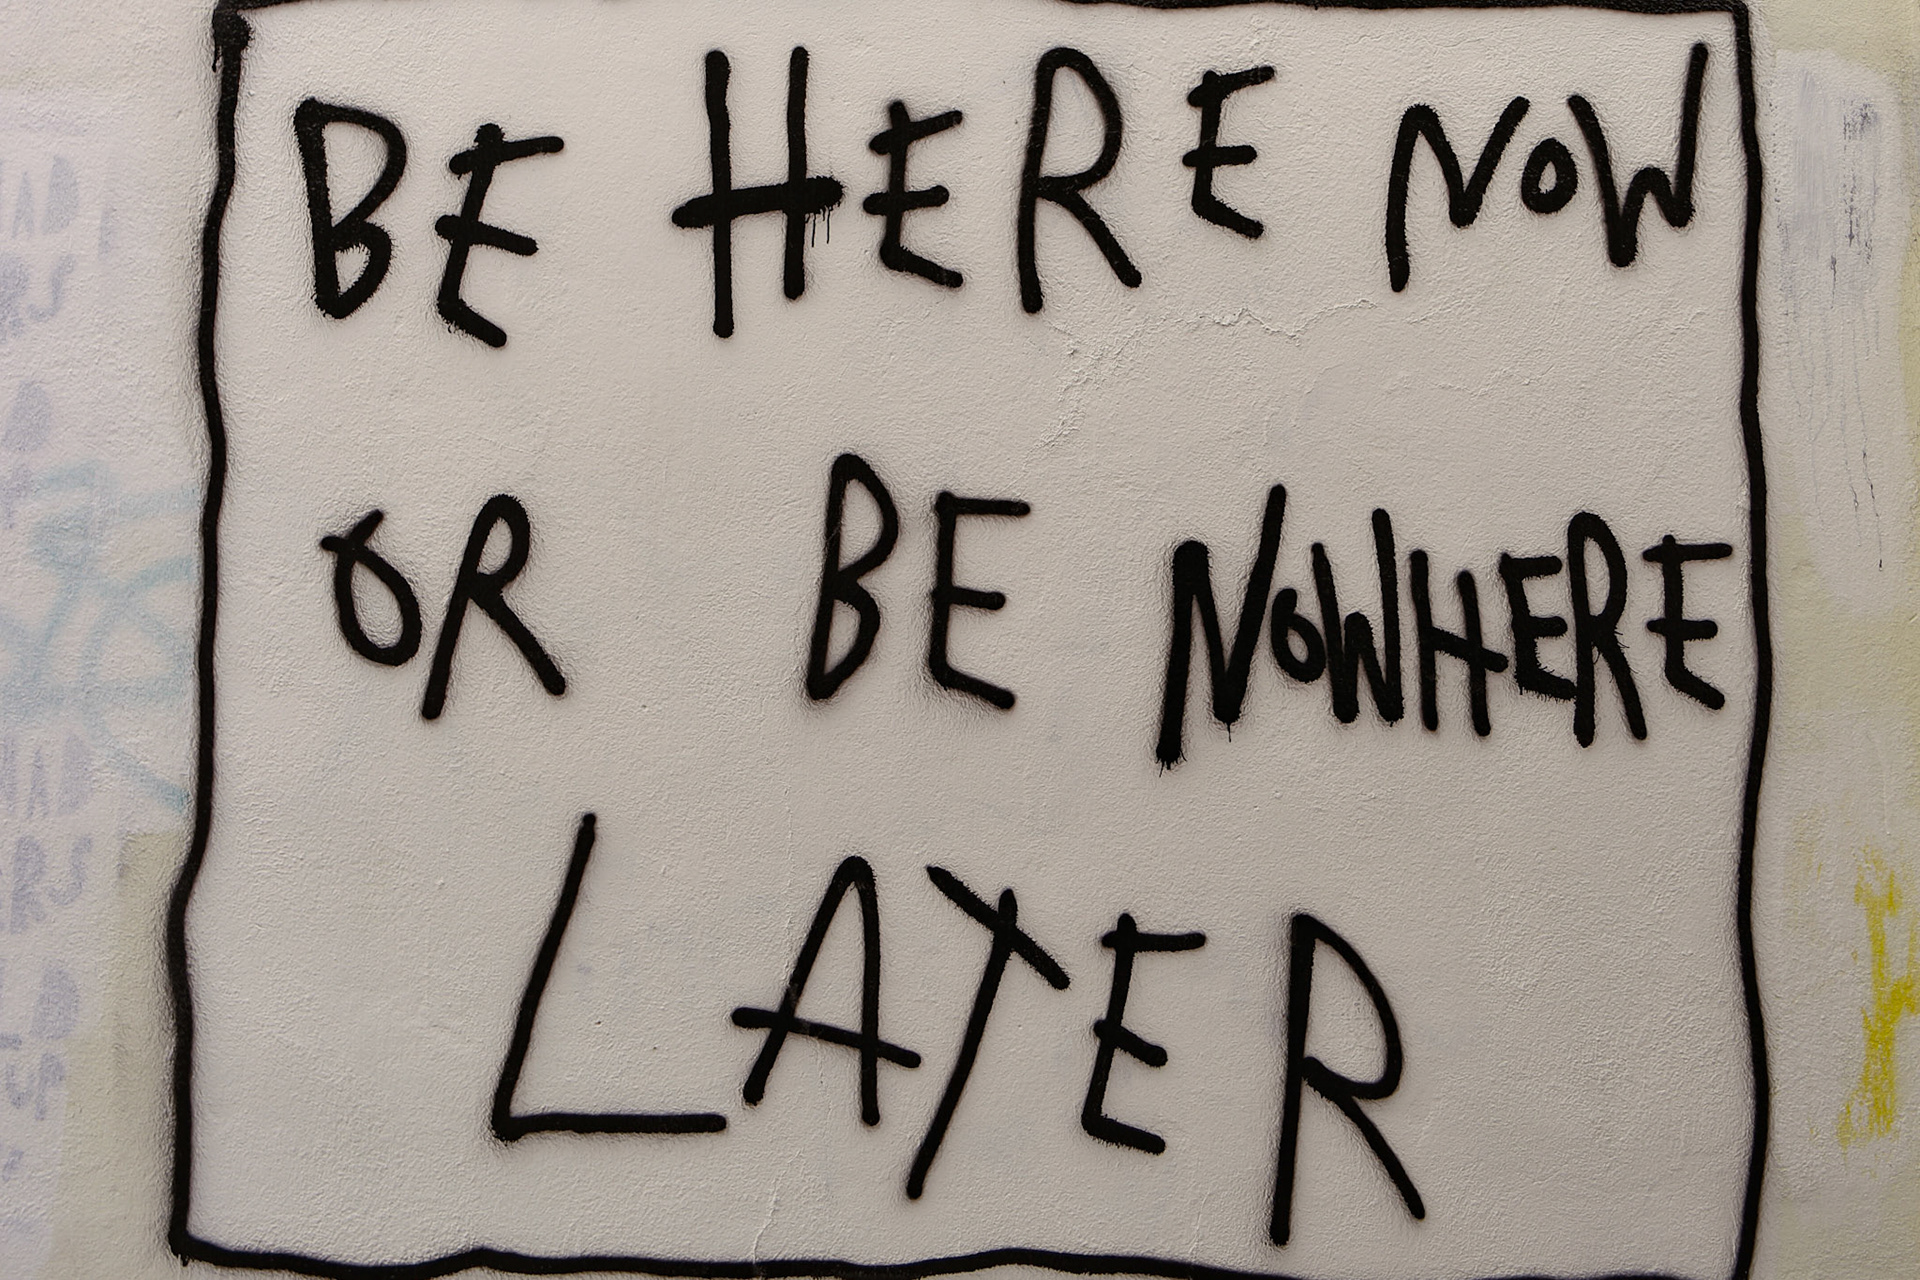 BE HERE NOW
OR BE NOWHERE
LATER